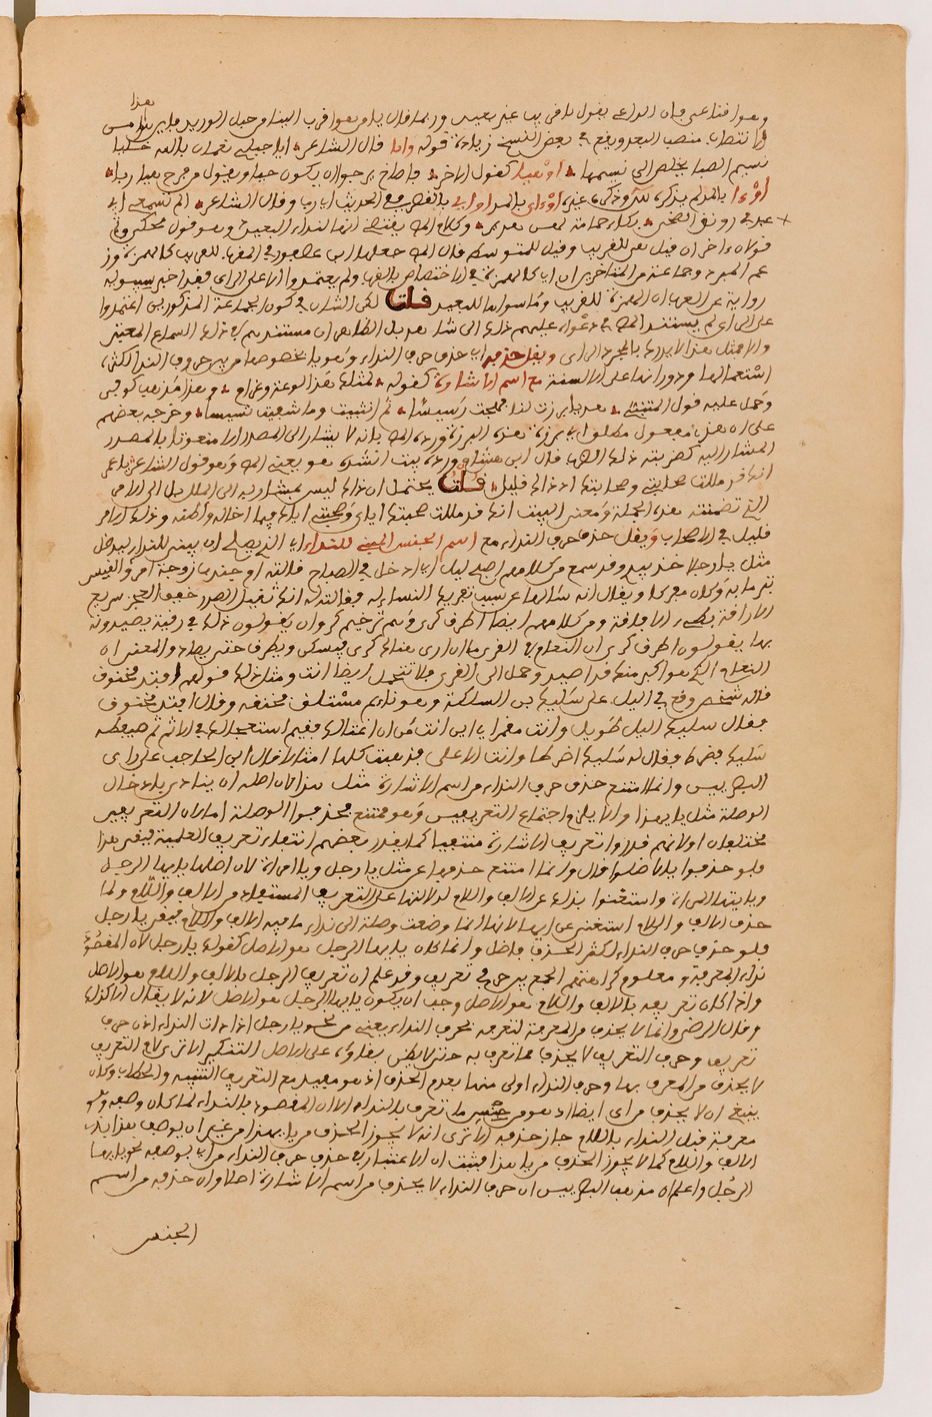 بهذا
وهو انتفاعى فان الداعى يقول يا قريب غير بعيد وربما قال يا من هو اقرب الينا من حبل الوريد
الا تنتصاب منصب البعد ويقع فى بعض النسخ زيادة قوله واما قال الشاعر ايا جبلى نعمان بالله خليا
نسيم الصبا يخلص الى نسيمها او هيا كقول الاخر فاصاخ يرجو ان يكون حيا ويقول من فرح هيا ربا
او ءا بالمد لم يذكره سيبويه وذكره غيره او ءاى بالمد او اى بالقصر وفى الحديث اى رب وقال الشاعر الم تسمعى اى
عبد فى رونق الضحى بكاء حمامات لهن هدير وكلام المص يقتضى انها لنداء البعيد وهو قول محكى وفى
قولان اخران قيل هى للقريب وقيل للمتوسط قال المص جعلها ابن عصفور فى المقرب للقريب كالهمزة وز
عم المبرد وجماعة من المتاخرين ان اى كالهمزة فى الاختصاص بالقرب ولم يعتمدوا الا على الراى فقد اخبر سيبويه
رواية عن العرب ان الهمزة للقريب وما سواها للبعيد قلت لكن الشان فى كون الجماعة المذكورين اعتمدوا
على الراى لم يستند المص فى دعواه عليهم ذلك الى شاهد بل الظاهر ان مستندهم فى ذلك السماع المعتبر
والا فمثل هذا لا يدرك بالمجرد الراى ويقل حذفه اى حذف حرف النداء وهو يا بخصوصها من بين حروف النداء لكثرة
استعمالها ودورانها على الالسنة مع اسم الاشارة كقوله بمثلك هذا لوعة وغرام وهذا مذهب كوفى
وحمل عليه قول المتنبى هذى برزت لنا فهجت رسيسا ثم انثنيت وما شفيت نسيسا وخرجه بعضهم
على ان هذى مفعول مطلق اى برزت هذه البرزة ورده المص بانه لا يشار الى المصدر الا منعوتا بالمصدر
المشار اليه كضربته ذلك الضرب قال ابن هشام ويرده بيت انشده هو يعنى المص وهو قول الشاعر يا عمر
انك قد مللت صحابتى وصحابتك اخال ذاك قليل قلت يحتمل ان ذاك ليس بمشار به الى الملل بل الى الامر
الذى تضمنته هذه الجملة ومعنى البيت انك قد مللت صحبتك اياى وصحبتى اياك فيما اخاله واظنه وذلك الامر
قليل فى الاصحاب ويقل حذف حرف النداء مع اسم الجنس المبنى للنداء اى الذى يصلح ان يبنى للنداء ليدخل
مثل يا رجلا خذ بيدى وقد سمع من كلامهم اصبح ليل اى ادخل فى الصباح قالته ام جندب زوجة امرئ القيس
تبرما به وكان مفركا ويقال انه سالها عن سبب تفريك النساء له فقالت له انك ثقيل الصدر خفيف العجز سريع
الاراقة بطيء الافاقة ومن كلامهم ايضا اطرق كرى وهم ترخيم كروان يقولون ذلك فى رقية يصيدونه
بها يقولون اطرق كرى ان النعام فى القرى ما ان ارى هنالك كرى فيسكن ويطرق حتى يصاد والمعنى ان
النعام الذى هو اكبر منك قد اصيد وحمل الى القرى فلا تتخيل ايضا انت ومثل ذلك قولهم افتد مخنوق
قاله شخص وقع فى الليل على سليك بن السلكة وهو نائم مستلق فخنقه وقال افتد مخنوق
فقال سليك الليل طويل وانت مقمر اى ابن انت من ان اغتالك ففيم استعجالك فى الاثم ثم ضغطه
سليك فضرط فقال له سليك اضرطا وانت الاعلى فذهبت كلها امثالا قال ابن الحاجب على راى
البصريين وانما امتنع حذف حرف النداء من اسم الاشارة مثل هذا لان اصله ان ينادى بادخال
الوصلة مثل يا ايهذا والا يلزم اجتماع التعريفين وهو ممتنع فحذفوا الوصلة اما لان التعريفين
مختلفان او لانهم قدروا تعريف الاشارة منتفيا كما يقدر بعضهم انتفاء تعريف العلمية فبقى هذا
فلو حذفوا يا لاخلوا قال وانما امتنع حذفها عن مثل يا رجل ويا امراة لان اصلها يا ايها الرجل
ويا ايتها المراة واستغنوا بذلك عن الالف واللام لدلالتها على التعريف المستفاد من الالف واللام ولما
حذف الالف واللام استغنى عن ايها لانها انما وضعت وصلة الى نداء ما فيه الالف واللام فبقى يا رجل
فلو حذف حرف النداء لكثر الحذف فاصل وانما كان يا ايها الرجل هو الاصل كقولك يا رجل لان المقصود
نداء المعرفة ومعلوم كراهتهم الجمع بين حرفى تعريف وقد علم ان تعريف الرجل بالالف واللام هو الاصل
واذا كان تعريفه بالالف واللام هو الاصل وجب ان يكون يا ايها الرجل هو الاصل لانه لا يقال الا كذلك
وقال الرضى وانما لا يحذف من المعرفة لتعرفه بحرف النداء يعنى من نحو يا رجل اذ اداة النداء اذن حرف
تعريف وحرف التعريف لا يحذف مما تعرف به حتى لا يظن بقاؤه على اصل التنكير الا ترى لام التعريف
لا يحذف من المعرف بها وحرف النداء اولى منها بعدم الحذف اذ هو مفيد مع التعريف التنبيه والخطاب وكان
ينبغى ان لا يحذف من اى ايضا اذ هو من جنس ما تعرف بالنداء الا ان المقصود بالنداء لما كان وصفه وهو
معرفة قبل النداء باللام جاز حذفه الا ترى انه لا يجوز الحذف من يا ايهذا من غير ان يوصف هذا بذى
الالف واللام كما لا يجوز الحذف من يا هذا فثبت ان الاعتبار فى حذف حرف النداء من اى بوصفه نحو يا ايها
الرجل واعلم ان مذهب البصريين ان حرف النداء لا يحذف من اسم الاشارة اصلا وان حذفه من اسم
الجنس